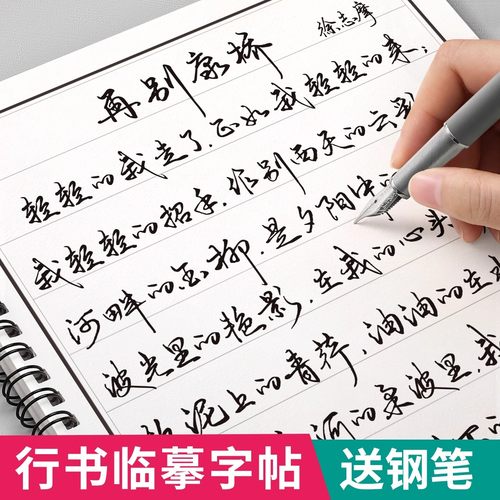 再别康桥
徐志摩
轻轻的我走了,正如我轻轻的来;
我轻轻的招手,作别西天的云彩
河畔的金柳,是夕阳中的
波光里的艳影,在我的心头
泥上的青荇,油油的在
河的柔波里,我
行书临摹字帖
送钢笔